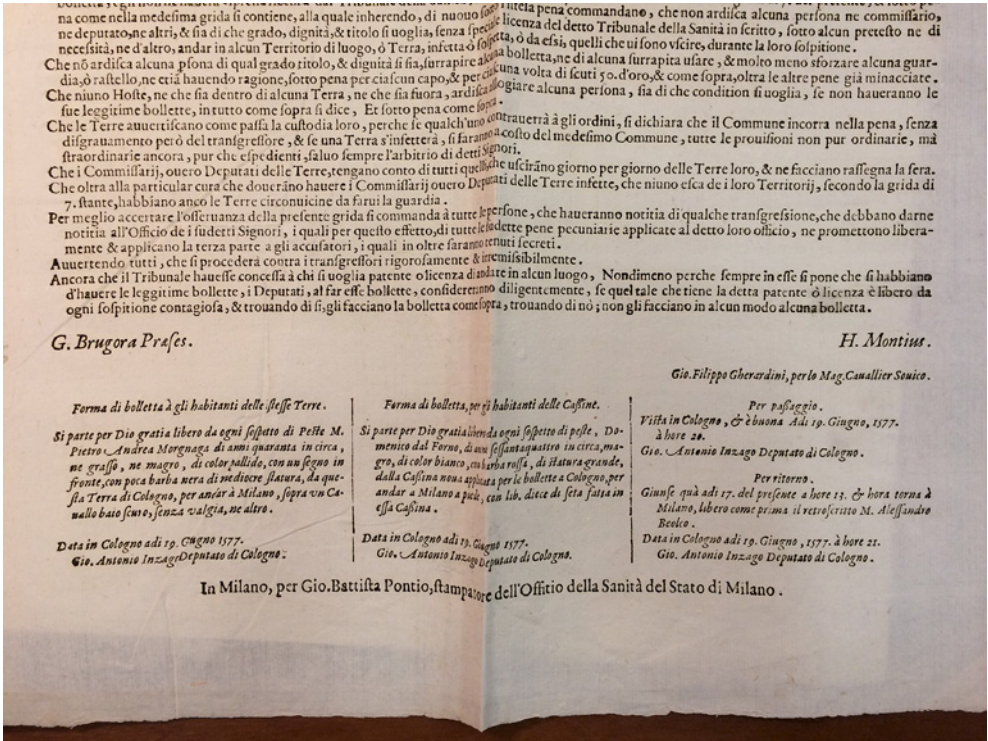 na come nella medesima grida si contiene, alla quale inherendo, di nuouo sotto l'istessa pena commandano, che non ardisca alcuna persona ne commissario,
ne deputato, ne altri, & sia di che grado, dignità, & titolo si uoglia, senza speciale licenza del detto Tribunale della Sanità in scritto, sotto alcun pretesto ne di
necessità, ne d'altro, andar in alcun Territorio di luogo, ò Terra, infetta ò sospetta, ò da essi, quelli che ui sono uscire, durante la loro sospitione.
Che nō ardisca alcuna psona di qual grado titolo, & dignità si sia, surrapire alcuna bolletta, ne di alcuna surrapita usare, & molto meno sforzare alcuna guar-
dia, ò rastello, ne etiā hauendo ragione, sotto pena per ciascun capo, & per ciascuna volta di scuti 50. d'oro, & come sopra, oltra le altre pene già minacciate.
Che niuno Hoste, ne che sia dentro di alcuna Terra, ne che sia fuora, ardisca allogiare alcuna persona, sia di che condition si uoglia, se non haueranno le
sue legittime bollette, in tutto come sopra si dice, Et sotto pena come sopra.
Che le Terre auuertiscano come passa la custodia loro, perche se qualch'uno contrauerrà à gli ordini, si dichiara che il Commune incorra nella pena, senza
disgrauamento però del transgressore, & se una Terra s'infetterà, si faranno à costo del medesimo Commune, tutte le prouisioni non pur ordinarie, mà
straordinarie ancora, pur che espedienti, saluo sempre l'arbitrio di detti Signori.
Che i Commissarij, ouero Deputati delle Terre, tengano conto di tutti quelli, che uscirāno giorno per giorno delle Terre loro, & ne facciano rassegna la sera.
Che oltra alla particular cura che doueràno hauere i Commissarij ouero Deputati delle Terre infette, che niuno esca de i loro Territorij, secondo la grida di
7. stante, habbiano anco le Terre circonuicine da farui la guardia.
Per meglio accertare l'osseruanza della presente grida si commanda à tutte le persone, che haueranno notitia di qualche transgressione, che debbano darne
notitia all'Officio de i sudetti Signori, i quali per questo effetto, di tutte le sudette pene pecuniarie applicate al detto loro officio, ne promettono libera-
mente & applicano la terza parte a gli accusatori, i quali in oltre saranno tenuti secreti.
Auuertendo tutti, che si procederà contra i transgressori rigorosamente & irremissibilmente.
Ancora che il Tribunale hauesse concessa à chi si uoglia patente o licenza di andare in alcun luogo, Nondimeno perche sempre in esse si pone che si habbiano
d'hauere le leggitime bollette, i Deputati, al far esse bollette, considereranno diligentemente, se quel tale che tiene la detta patente ò licenza è libero da
ogni sospitione contagiosa, & trouando di si, gli facciano la bolletta come sopra, trouando di nò; non gli facciano in alcun modo alcuna bolletta.
G. Brugora Præses.
H. Montius.
Gio. Filippo Gherardini, per lo Mag. Cauallier Souico.
Forma di bolletta à gli habitanti delle stesse Terre.
Si parte per Dio gratia libero da ogni sospetto di Peste M.
Pietro Andrea Morgnaga di anni quaranta in circa,
ne grasso, ne magro, di color pallido, con un segno in
fronte, con poca barba nera di mediocre statura, da que-
sta Terra di Cologno, per andar à Milano, sopra vn Ca-
uallo baio scuro, senza valgia, ne altro.
Data in Cologno adi 19. Giugno 1577.
Gio. Antonio Inzago Deputato di Cologno.
Forma di bolletta, per gli habitanti delle Cassine.
Si parte per Dio gratia libero da ogni sospetto di peste, Do-
menico dal Forno, di anni sessantaquattro in circa, ma-
gro, di color bianco, con barba rossa, di statura grande,
dalla Cassina noua applicata per le bollette a Cologno, per
andar a Milano a piede, con lib. diece di seta fatta in
essa Cassina.
Data in Cologno adi 19. Giugno 1577.
Gio. Antonio Inzago Deputato di Cologno.
Per passaggio.
Vista in Cologno, & è buona Adi 19. Giugno, 1577.
à hore 20.
Gio. Antonio Inzago Deputato di Cologno.
Per ritorno.
Giunse quà adi 17. del presente a hore 13. & hora torna à
Milano, libero come prima il retroscritto M. Alessandro
Beolco.
Data in Cologno adi 19. Giugno, 1577. à hore 21.
Gio. Antonio Inzago Deputato di Cologno.
In Milano, per Gio. Battista Pontio, stampatore dell'Offitio della Sanità del Stato di Milano.